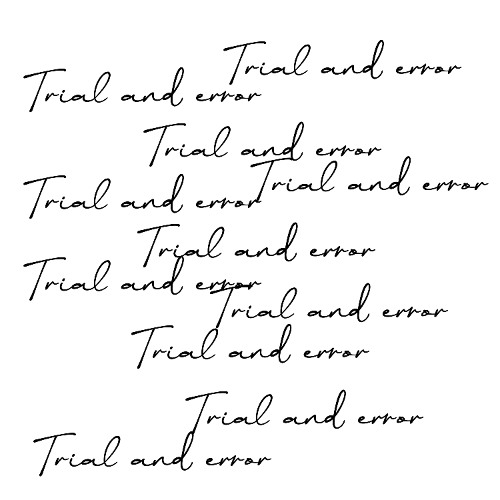 Trial and error
Trial and error
Trial and error
Trial and error
Trial and error
Trial and error
Trial and error
Trial and error
Trial and error
Trial and error
Trial and error